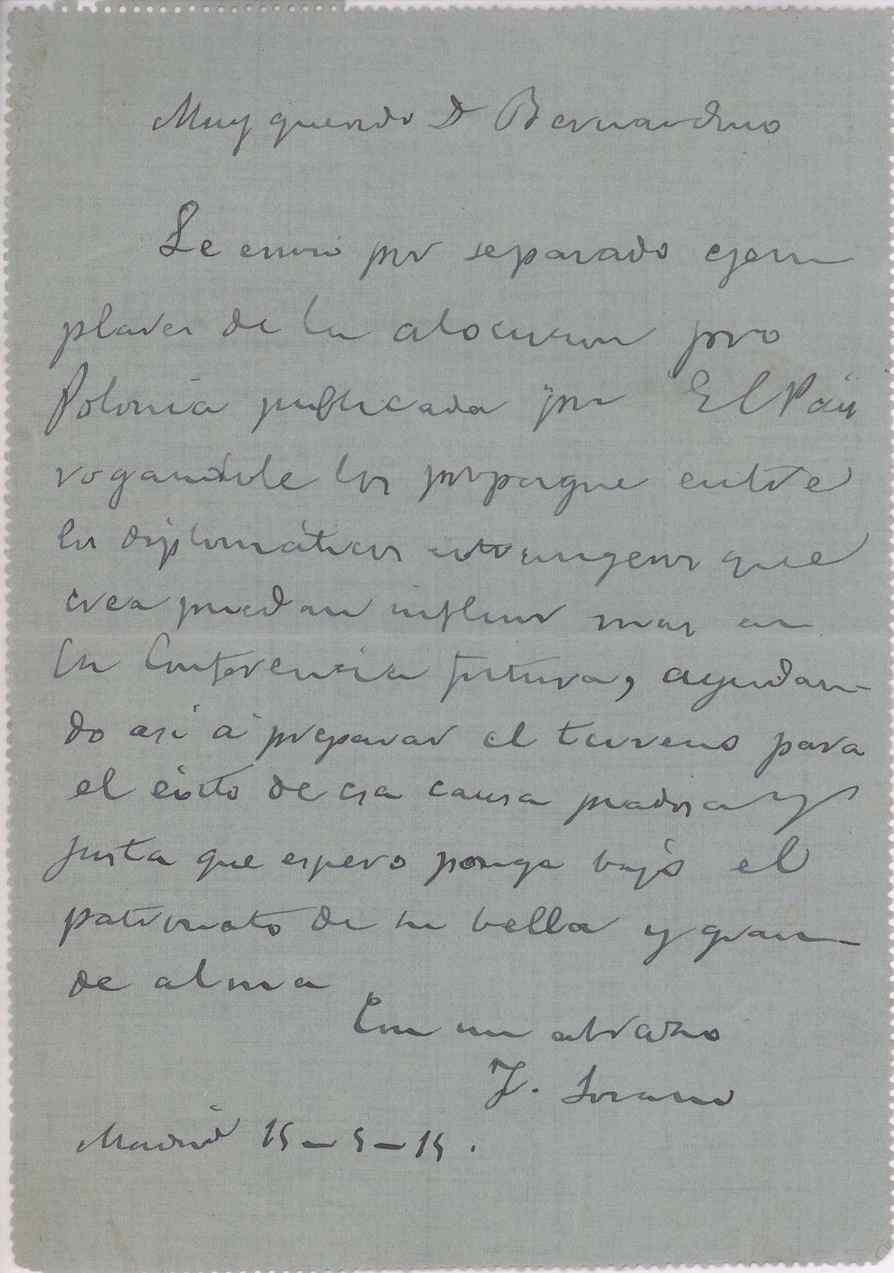 Muy querido D Bernardino
Le envio por separado ejem
plares de la alocucion pro
Polonia publicada por El País
rogandole los propague entre
los diplomáticos extrangeros que
crea puedan influir mas en
la Conferencia futura, ayudan-
do asi á preparar el terreno para
el éxito de esa causa piadosa y
justa que espero ponga bajo el
patronato de su bella y gran-
de alma
Con un abrazo
J. Lorano
Madrid 15-5-15.